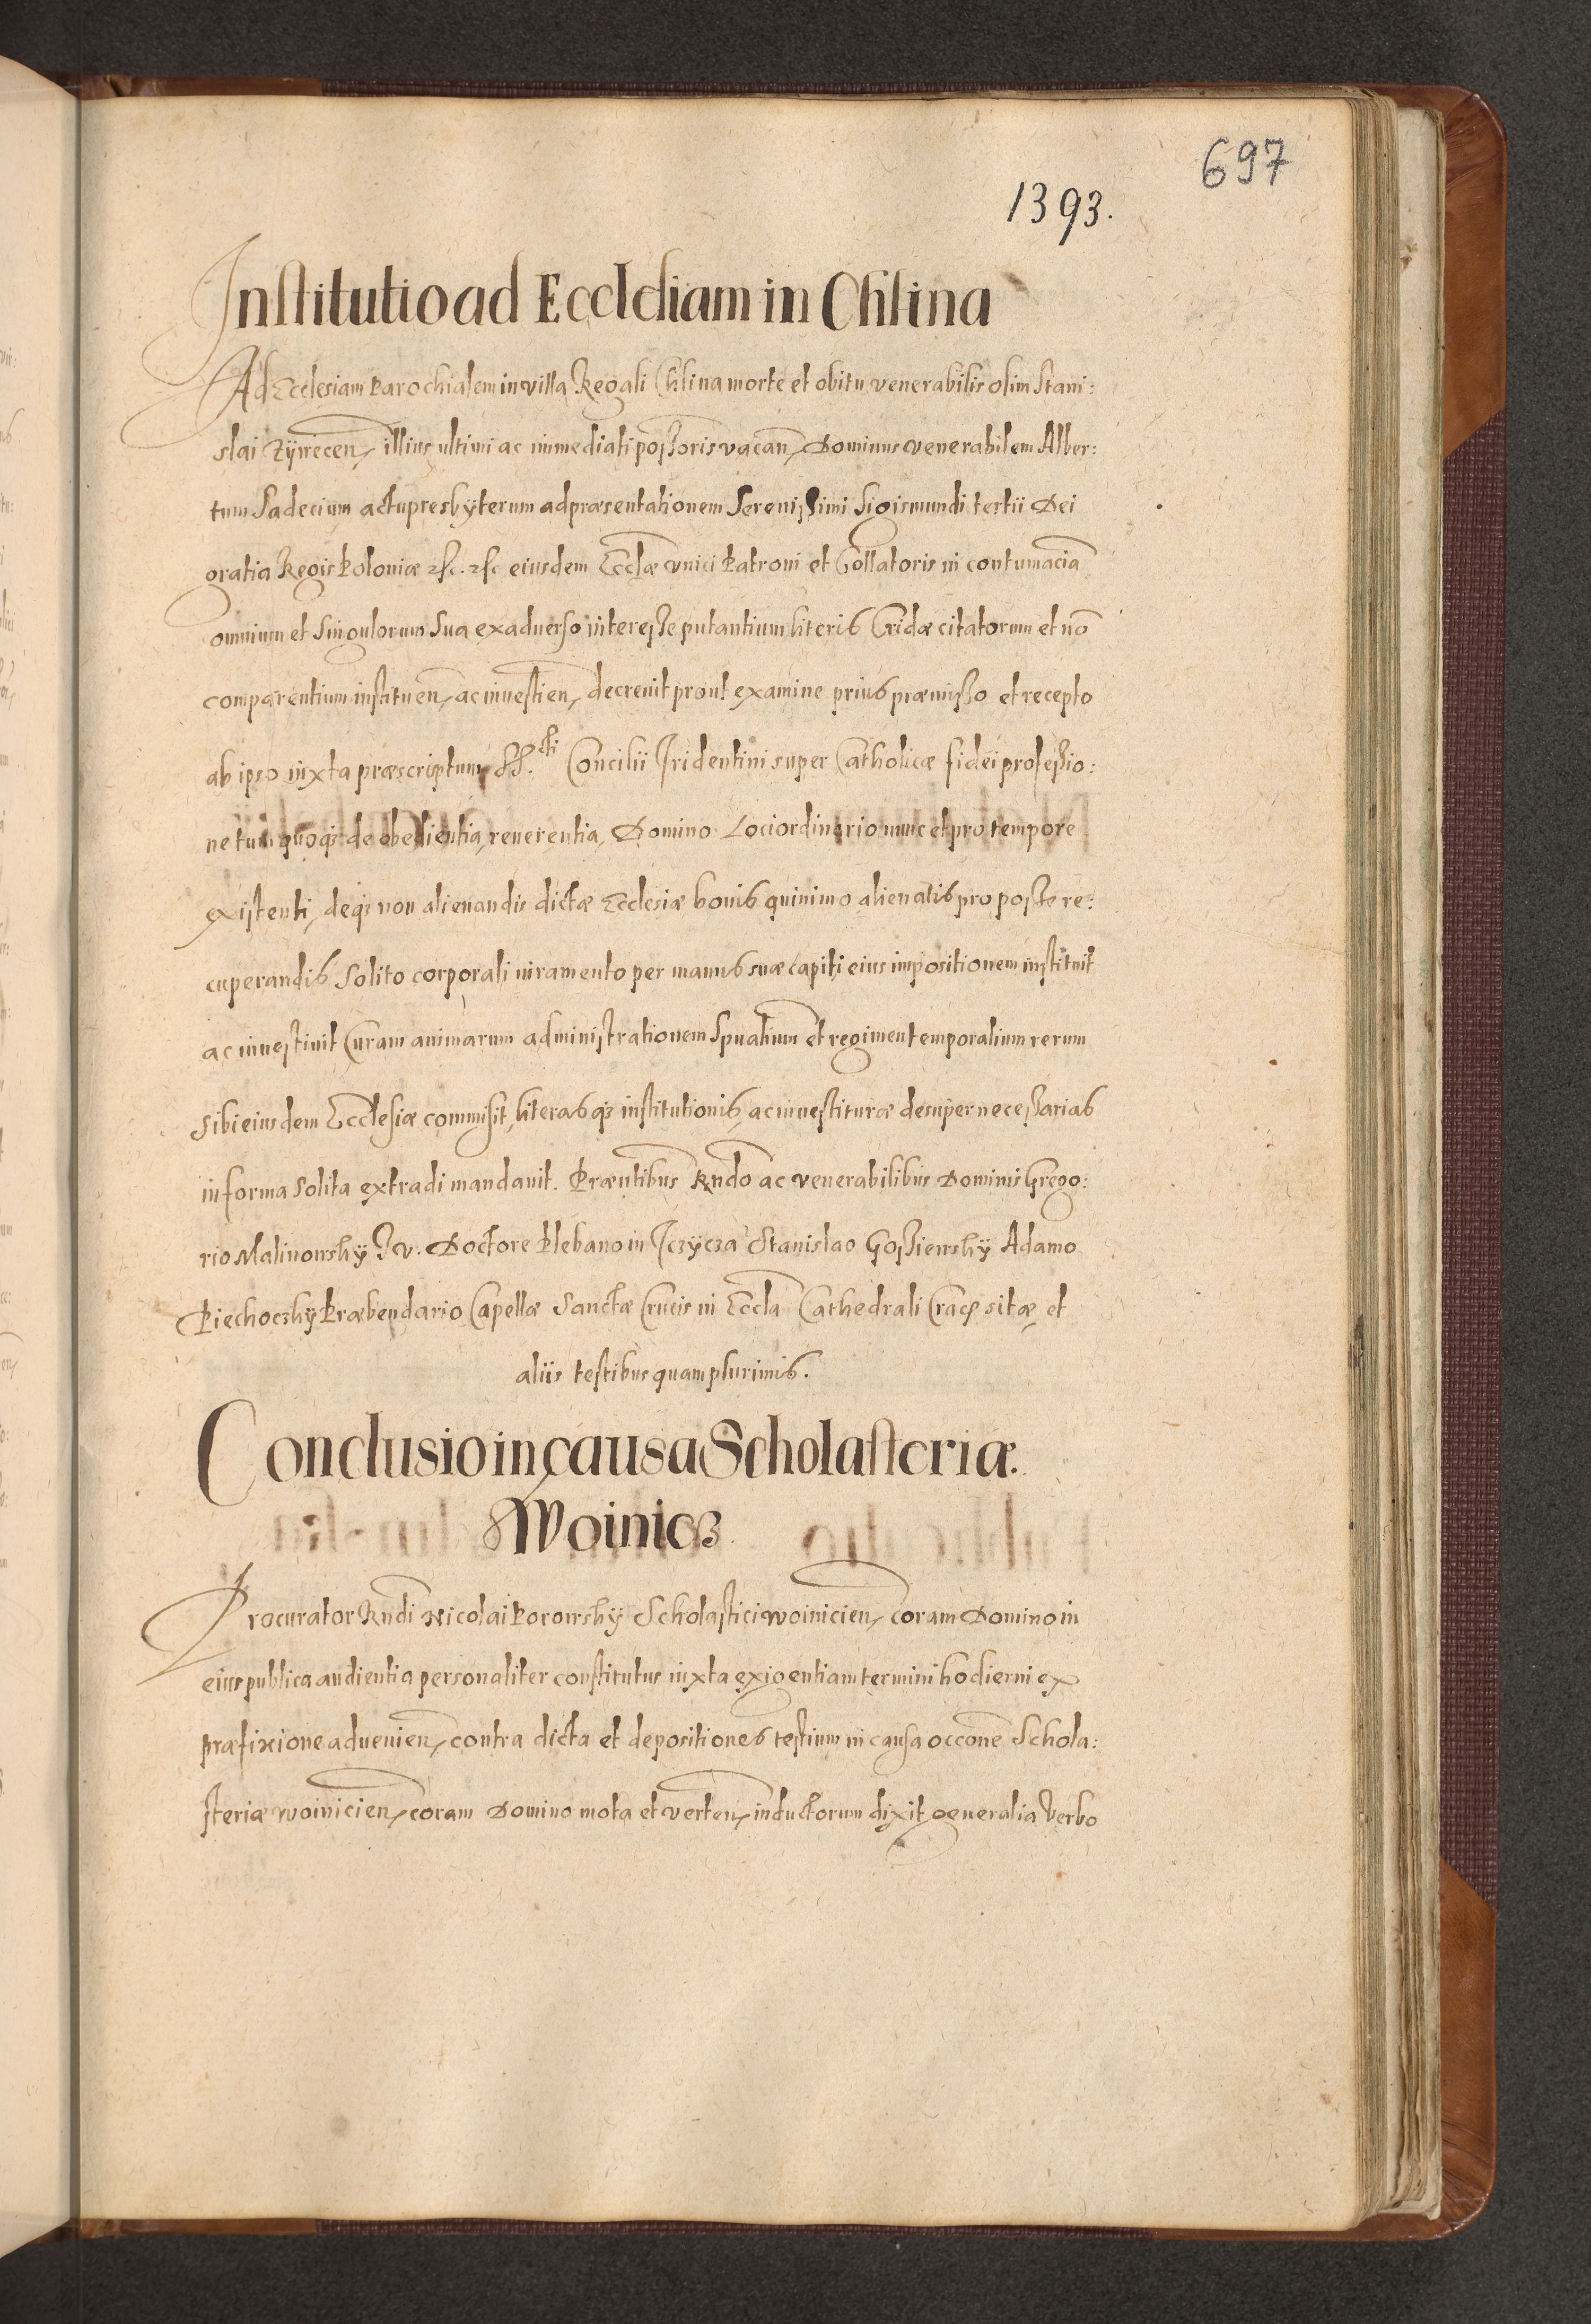 697
1393.
Institutio ad Ecclesiam in Chlina
Ad Ecclesiam Parochialem in villa Regali Chlina morte et obitu venerabilis olim Stani:
slai illius ultimi ac immediati poßoris vacan, Dominus venerabilem Alber:
tum Sadecium actu presbyterum ad præsentationem Sereniſsimi Sigismundi tertii Dei
gratia Regis Poloniæ ꝛc. ꝛc eiusdem Eccłæ vnici Patroni et Collatoris in contumaciã
omnium et singulorum sua ex aduerso intereße putantium literis Cridæ citatorum et nõ
comparentium instituen, ac inuestien, decreuit prout examine prius præmißo et recepto
ab ipso iuxta præscriptum SS.cti Concilii Tridentini super Catholicæ fidei profeßio:
ne tum quoqꝫ de obedientia, reuerentia, Domino Loci ordinario nunc et pro tempore
existenti, deqꝫ non alienandis dictæ Ecclesiæ bonis quinimo alienatis pro poße re:
cuperandis solito corporali iuramento per manus suæ capiti eius impositionem instituit
ac inuestiuit Curam animarum administrationem Spũalium et regimen temporalium rerum
sibi eiusdem Ecclesiæ commisit, literasqꝫ institutionis, ac inuestituræ desuper neceßarias
in forma solita extradi mandauit. Præñtibus Rñdo ac venerabilibus Dominis Grego:
rio Malinowsky J. V. Doctore Plebano in Jczycza Stanislao Goßiewsky Adamo
Piechoczky Præbendario Capellæ Sanctæ Crucis in Eccła Cathedrali Crac, sitæ et
aliis testibus quam plurimis.
Conclusio in causa Scholasteriæ
Woinicz
Procurator Rñdi Nicolai Porowsky Scholastici woinicien, coram Domino in
eius publica audientia personaliter constitutus iuxta exigentiam termini hodierni ex
præfixione aduenien, contra dicta et depositiones testium in causa occõne Schola:
steriæ woinicien, coram Domino mota et verten, inductorum dixit generalia verbo